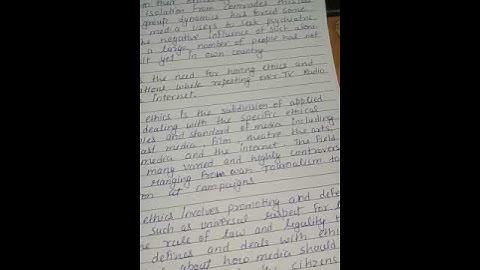 isolation from comrades
group dynamics has forced some
media users to seek psychiatric
he negative influence of such alone
a large number of people had not
lt yet in own country
s the need for having ethics and
ations while repeating over TV Radio
Internet.
ethics Is the subdivision of applied
dealing with the specific ethical
les and standard of media including
ast media, Film, theatre the arts,
media and the internet. The Field
many varied and highly controvers
Ranging From war Jouonalism to
on at campaigns
ethics Involves promoting and defe
such as universal respect for
he rule of law and legality
defines and deals with ethi
about how media should
citizens